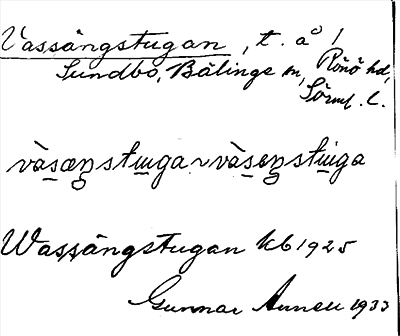 Vassängstugan, t. å 1
Sundbo, Bälinge sn, Rönö hd,
Sörml. l.
vàsæŋstuga ~ vàsenstuga
Wassängstugan kb 1925
Gunnar 1933